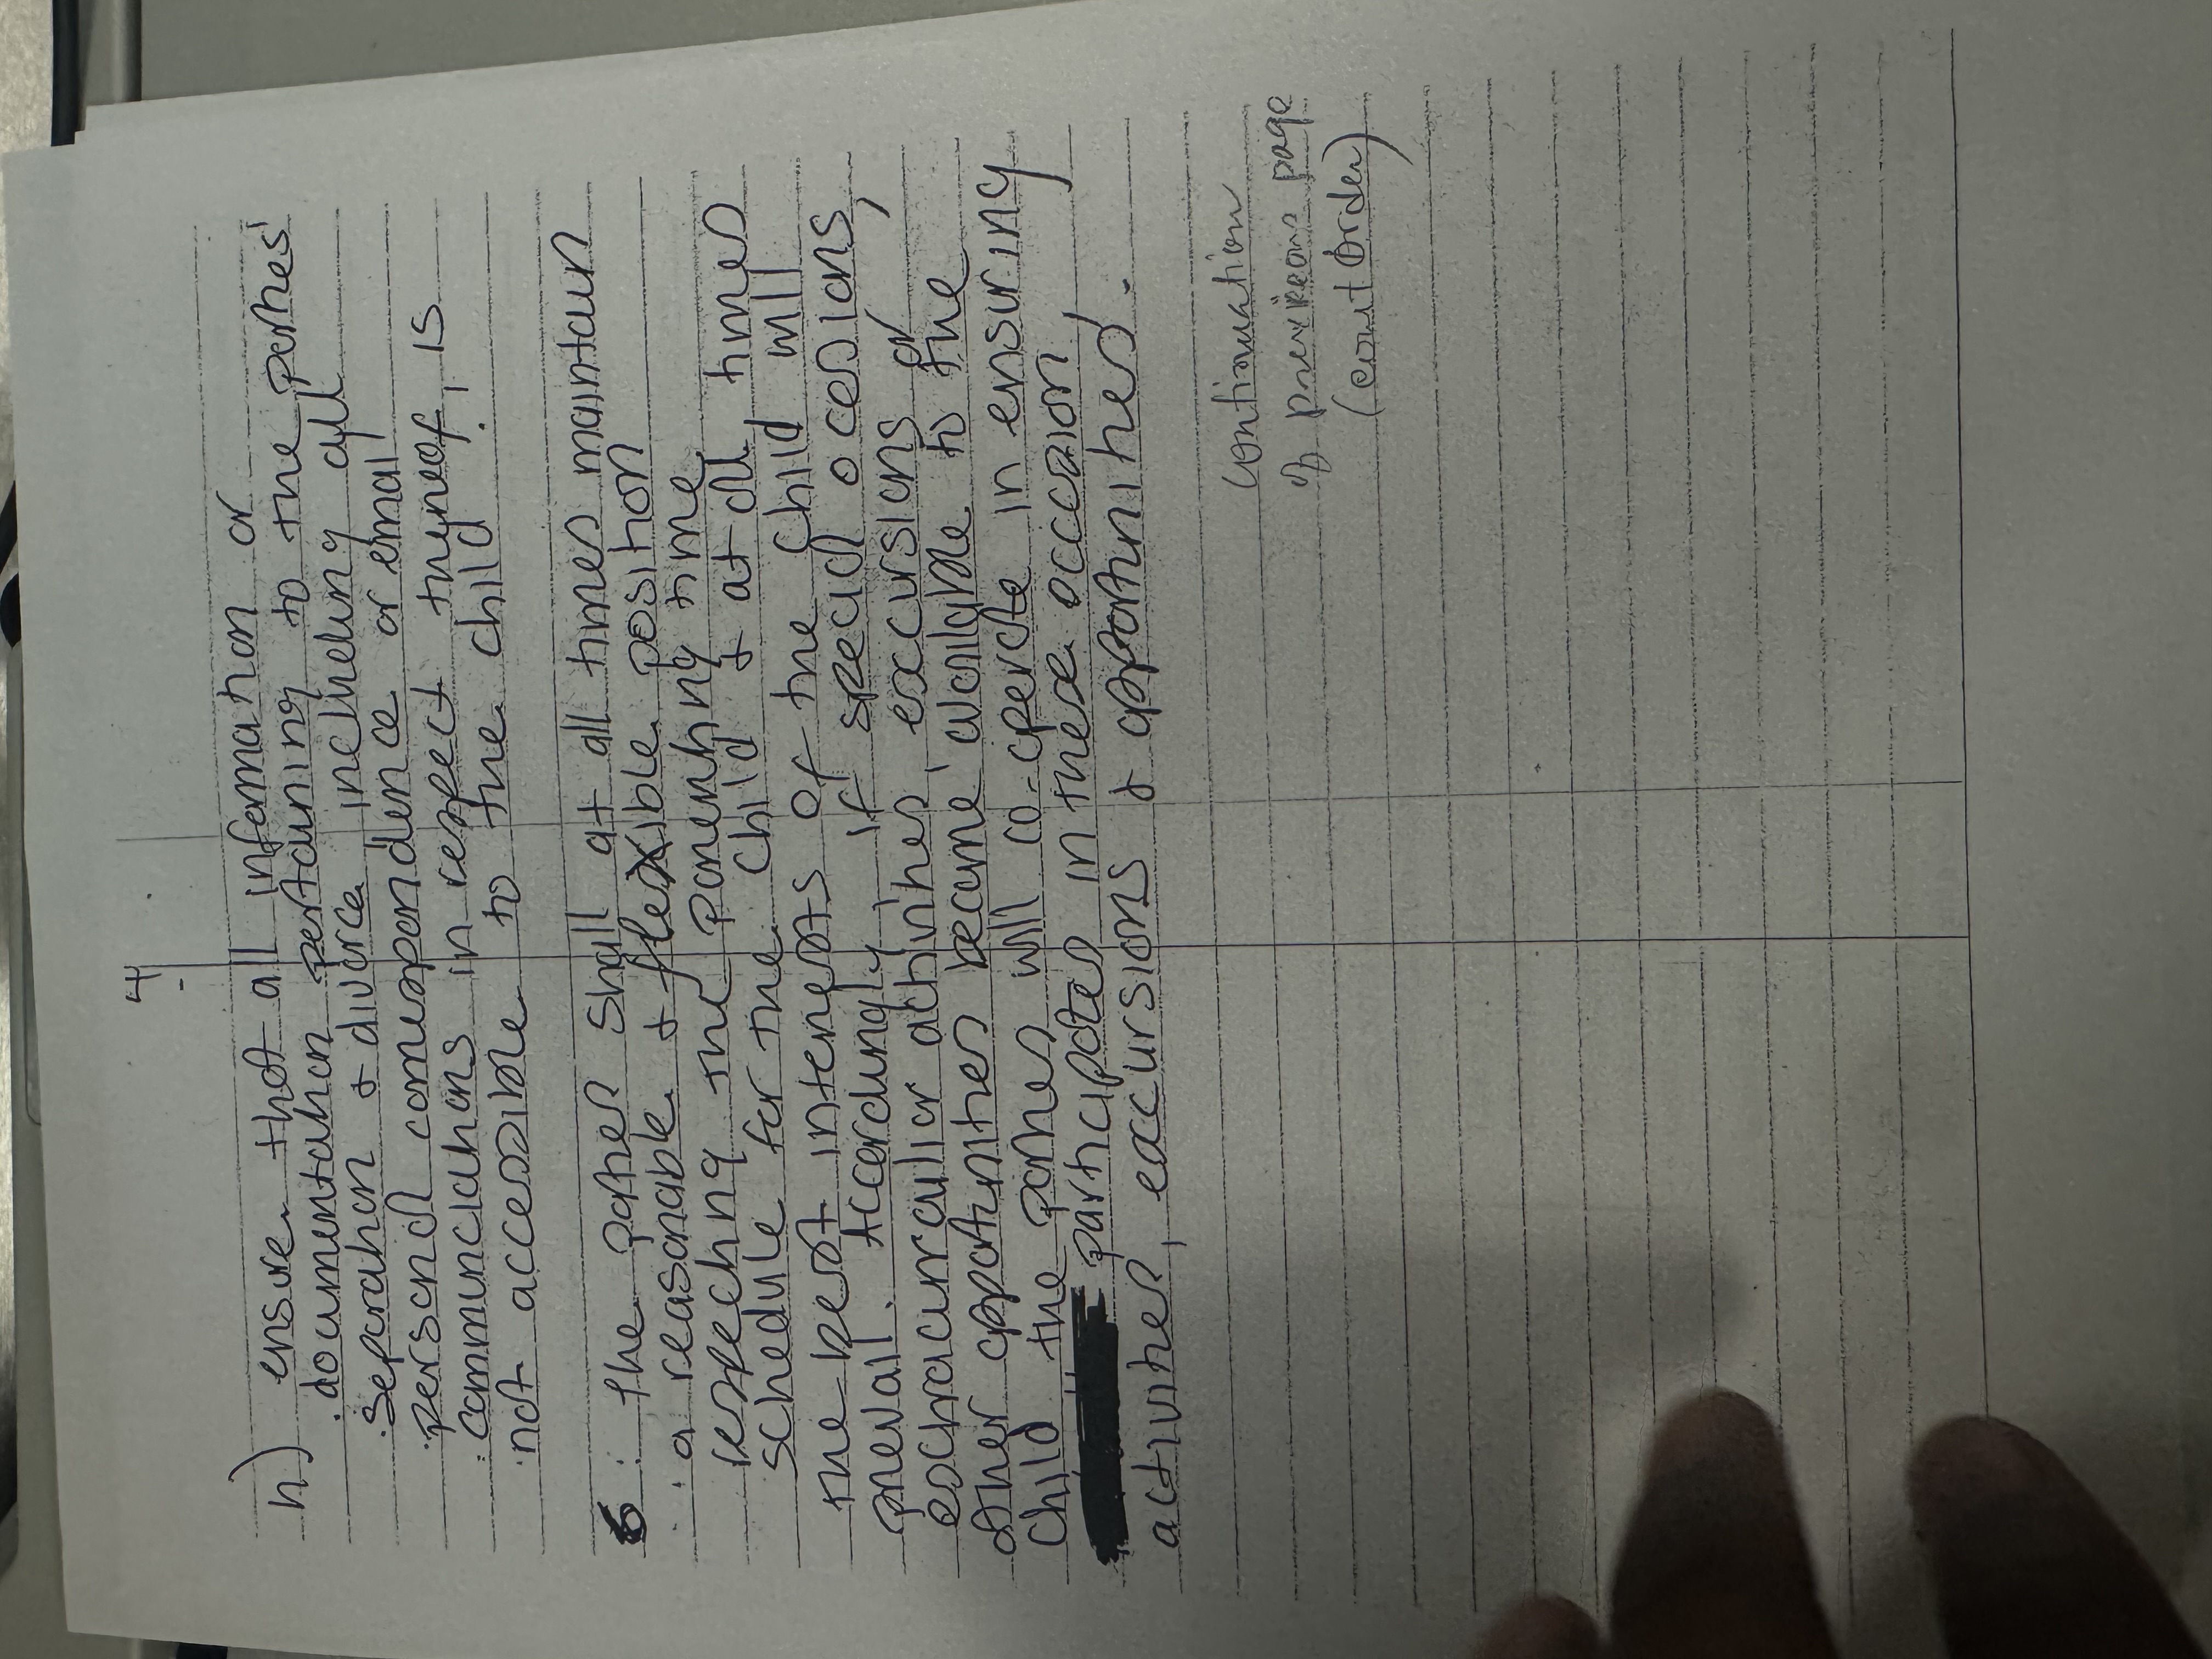 4
-
h) ensure that all information or
documentation pertaining to the parties'
separation & divorce, including all
personal correspondence or email
communciations in respect thereof, is
not accessible to the child.
6: The parties shall at all times maintain
a reasonable & flexible position
respecting the parenting time
schedule for the child & at all, times
the best interests of the child will
prevail. Accordingly, if special occasions,
extracurricular activities, excursions or
other opportunities become available to the
child the parties will co-operate in ensuring
participates in these occasion,
activities, excursions & opportunities.
continuation
of previous page
(court order)